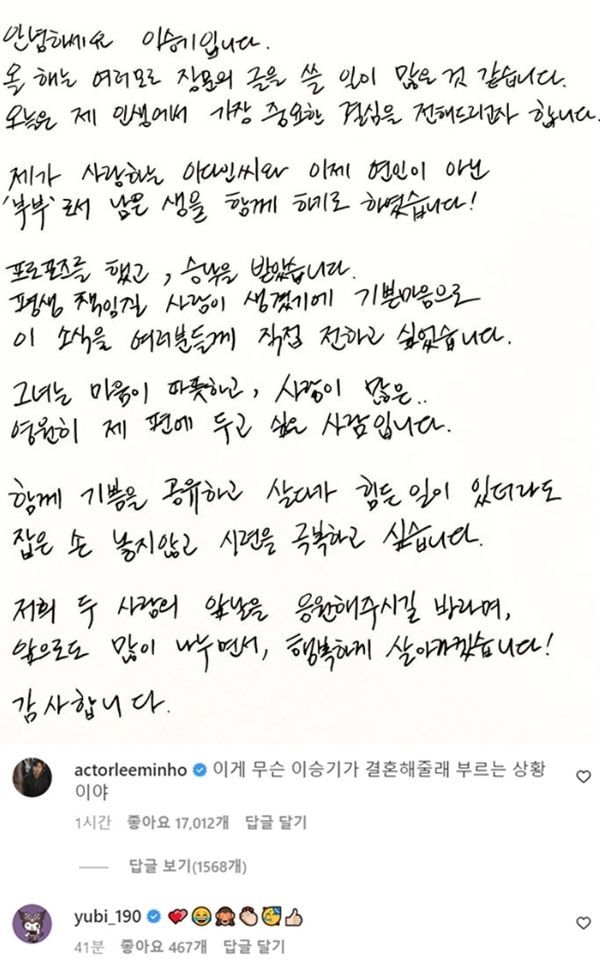 안녕하세요 이승기입니다.
올 해는 여러모로 장문의 글을 쓸 일이 많은 것 같습니다.
오늘은 제 인생에서 가장 중요한 결심을 전해드리고자 합니다.
제가 사랑하는 이다인씨와 이제 연인이 아닌
'부부'로서 남은 생을 함께 하기로 하였습니다!
프로포즈를 했고, 승낙을 받았습니다.
평생 책임질 사람이 생겼기에 기쁜마음으로
이 소식을 여러분들께 직접 전하고 싶었습니다.
그녀는 마음이 따뜻하고, 사랑이 많은..
영원히 제 편에 두고 싶은 사람입니다.
함께 기쁨을 공유하고 살다가 힘든 일이 있더라도
잡은 손 놓지않고 시련을 극복하고 싶습니다.
저희 두 사람의 앞날을 응원해주시길 바라며,
앞으로도 많이 나누면서, 행복하게 살아가겠습니다!
감사합니다.
actorleeminho 이게 무슨 이승기가 결혼해줄래 부르는 상황
이야
1시간 좋아요 17,012개 답글 달기
답글 보기(1568개)
yubi_190 💘😂🙈👏🥳👍🏻
41분 좋아요 467개 답글 달기